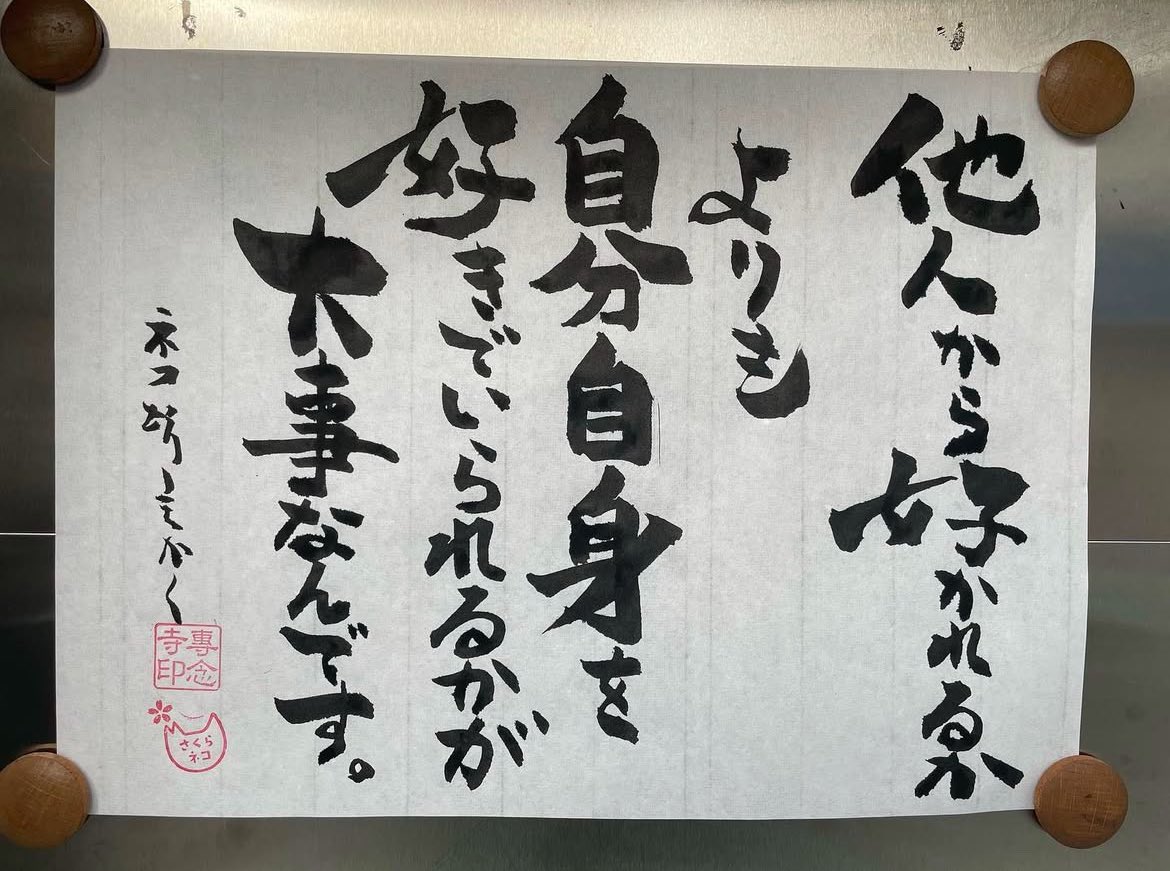 他人から好かれるか
よりも
自分自身を
好きでいられるかが
大事なんです。
ネコ坊主かく
専念
寺印
さくら
ネコ